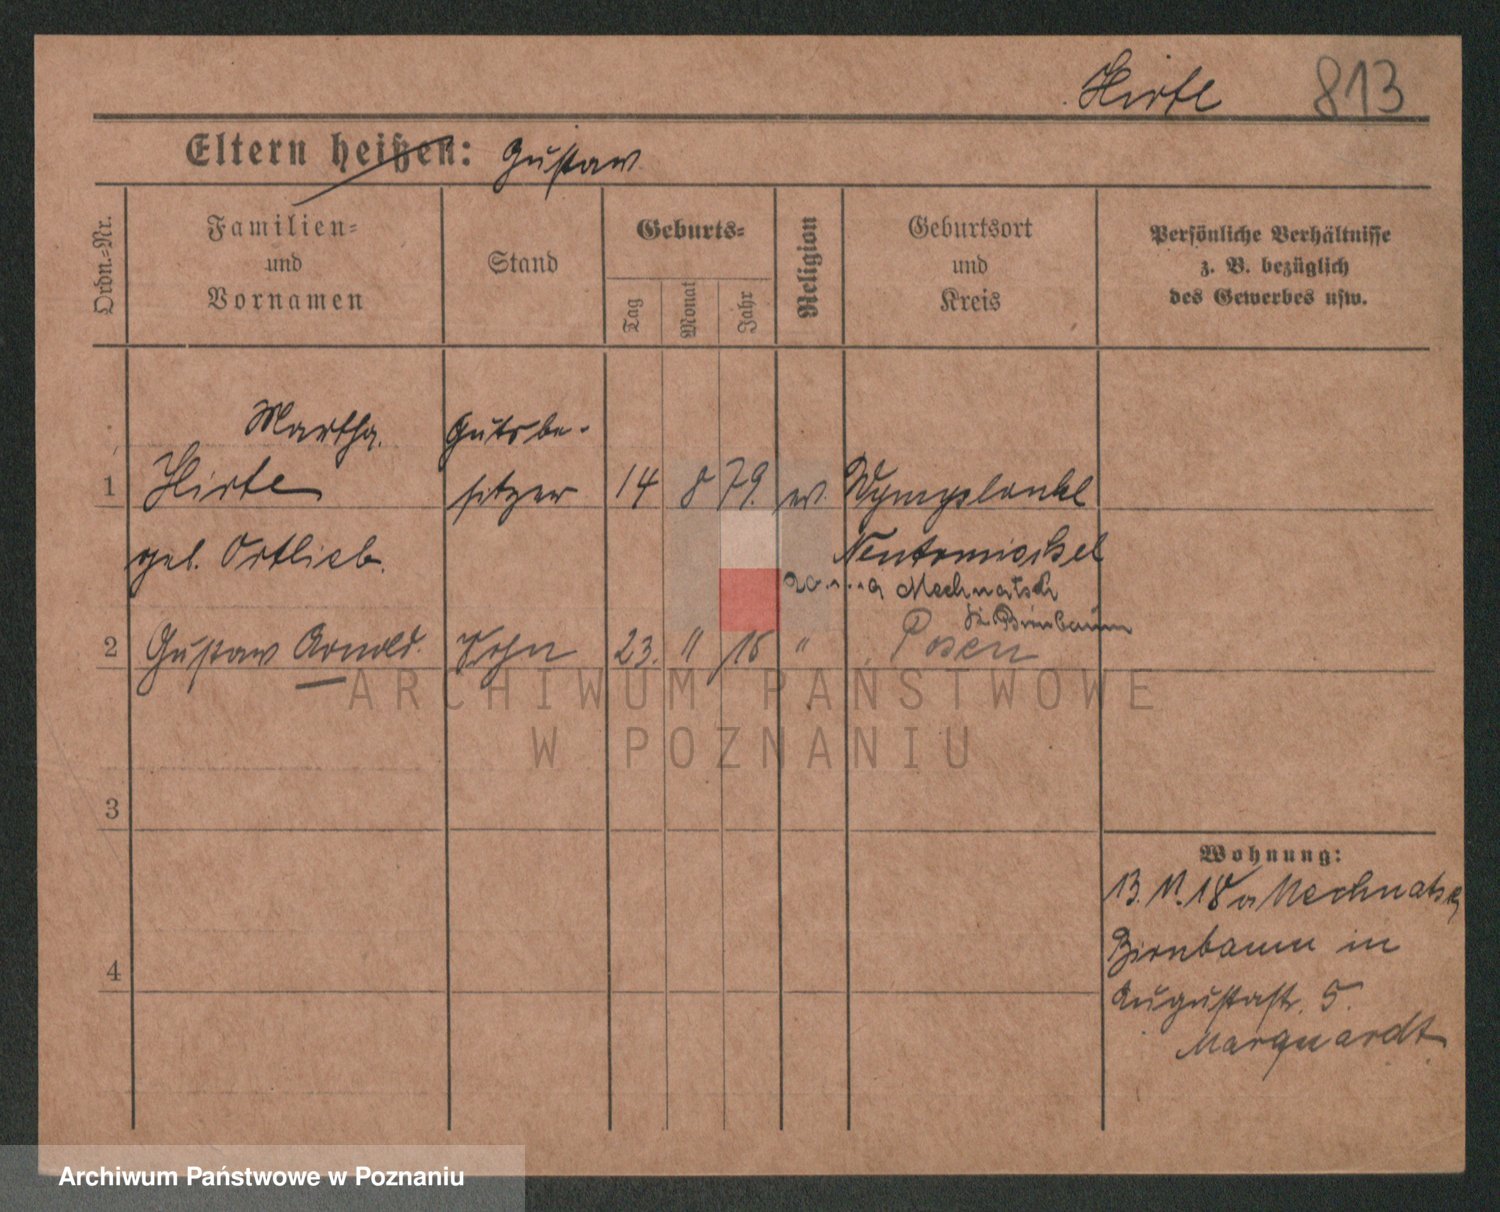 Hirte 813
Eltern heißen: Gustaw
Ordn.-Nr.
Familien-
und
Vornamen
Stand
Geburts-
Tag
Monat
Jahr
Religion
Geburtsort
und
Kreis
Persönliche Verhältnisse
z. B. bezüglich
des Gewerbes usw.
Martha. Gutsbe-
1 Hirte sitzer 14 8 79. ev.
geb. Ortlieb. Neutomischel
Mechnatsch
Kr. Birnbaum
2 Gustaw Arnold. Sohn 23. " 15 " Posen
ARCHIWUM PAŃSTWOWE
W POZNANIU
3
Wohnung:
13. 18 a Mechnatsch
Birnbaum in
4
Augustastr. 5.
Marquardt
Archiwum Państwowe w Poznaniu